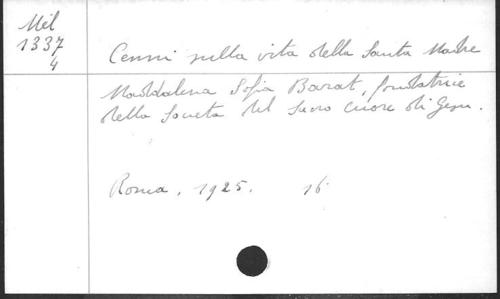 Mél
1337
4
Cenni sulla vita della Santa Madre
Maddalena Sofia Barat, fondatrice
della Società del Sacro Cuore di Gesu.
Roma, 1925. 16°